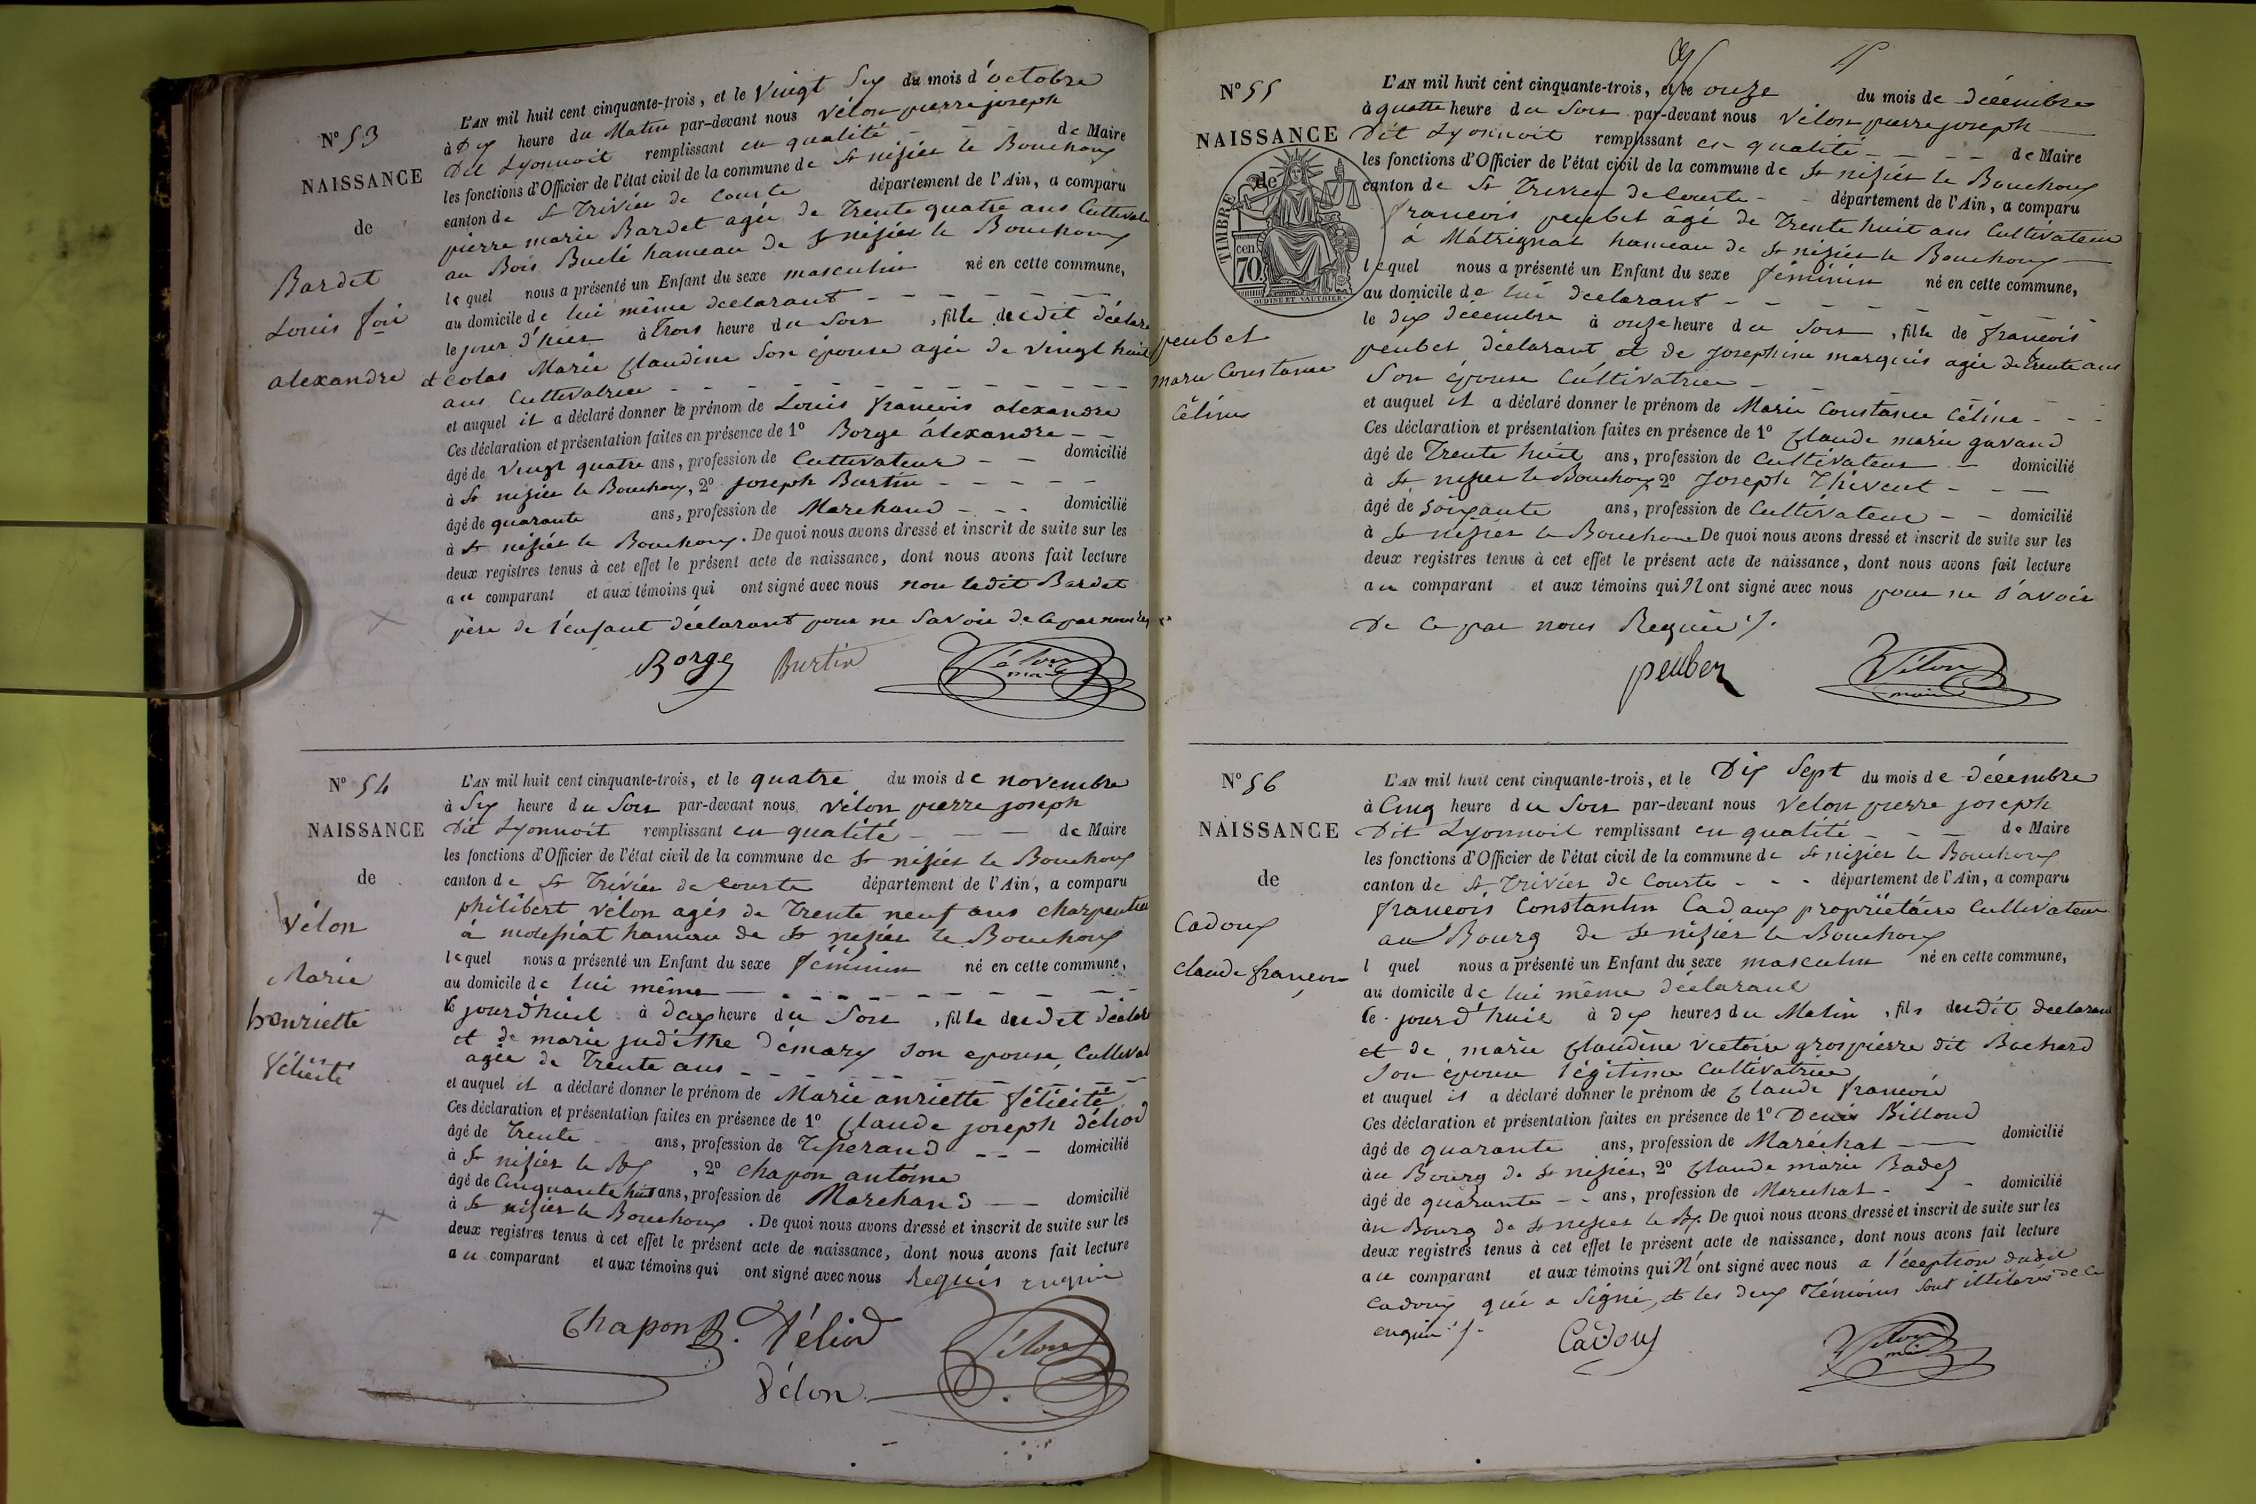 N° 53
NAISSANCE
de
Bardet
Louis foie
alexandre
L'AN mil huit cent cinquante-trois, et le Vingt Six du mois d'octobre
à Dix heure du Matin par-devant nous Vélon pierre joseph
Dit Lyonnoit remplissant en qualité - - - de Maire
les fonctions d'Officier de l'état civil de la commune de St nizier le Bouchoux
canton de St Trivier de Courte département de l'Ain, a comparu
pierre marie Bardet agée de Trente quatre ans Cultivate
au Bois Buclé hameau de St nizier le Bouchoux
lequel nous a présenté un Enfant du sexe masculin né en cette commune,
au domicile de lui même déclarant - - - - - -
le jour d'hier à Trois heure du Soir , fils dudit déclara
et Colas Marie Claudine Son épouse agée de vingt huit
ans Cultivatrice - - - - - - - - - -
et auquel il a déclaré donner le prénom de Louis francois alexandre
Ces déclaration et présentation faites en présence de 1° Borge álexandre - -
âgé de Vingt quatre ans, profession de Cultivateur - - domicilié
à St nizier le Bouchoux, 2° joseph Burtin - - - - -
âgé de quarante ans, profession de Marchand - - - domicilié
à St nizier le Bouchoux. De quoi nous avons dressé et inscrit de suite sur les
deux registres tenus à cet effet le présent acte de naissance, dont nous avons fait lecture
au comparant et aux témoins qui ont signé avec nous non ledit Bardet
père de l'enfant déclarant pour ne Savoir de ce par nous
Borge Burtin Vélon
maire
N° 54
NAISSANCE
de
Vélon
Marie
henriette
Félicité
L'AN mil huit cent cinquante-trois, et le quatre du mois de novembre
à Six heure du Soir par-devant nous Vélon pierre joseph
Dit Lyonnoit remplissant en qualité - - - de Maire
les fonctions d'Officier de l'état civil de la commune de St nizier le Bouchoux
canton de St Trivier de Courte département de l'Ain, a comparu
philibert Vélon agés de Trente neuf ans charpentier
à moleziat hameau de St nizier le Bouchoux
lequel nous a présenté un Enfant du sexe féminin né en cette commune,
au domicile de lui même - - - - - - - - -
le jourd'huit à deux heure du Soir , fille dudit déclar
et de marie judithe démary son epouse, Cultivat
agée de Trente ans - - - - - - - - -
et auquel il a déclaré donner le prénom de Marie anriette félicité
Ces déclaration et présentation faites en présence de 1° Claude joseph déliod
âgé de Trente ans, profession de Tisserand - - - domicilié
à St nizier le Bx , 2° Chapon antoine
âgé de Cinquante huit ans, profession de Marchand - - domicilié
à St nizier le Bouchoux . De quoi nous avons dressé et inscrit de suite sur les
deux registres tenus à cet effet le présent acte de naissance, dont nous avons fait lecture
au comparant et aux témoins qui ont signé avec nous Requis enquis
Chapon Déliod
Vélon Vélon
N° 55
NAISSANCE
de
TIMBRE
70 cen
OUDINE ET VAUTHIER
peubet
marie Constance
Céline
L'AN mil huit cent cinquante-trois, et le onze du mois de décembre
à quatre heure du Soir par-devant nous Vélon pierre joseph
Dit Lyonnoit remplissant en qualité - - - de Maire
les fonctions d'Officier de l'état civil de la commune de St nizier le Bouchoux
canton de St Trivier de Courte - - département de l'Ain, a comparu
francois peubet agé de Trente huit ans Cultivateur
à Mátrignat hameau de St nizier le Bouchoux
lequel nous a présenté un Enfant du sexe féminin né en cette commune,
au domicile de lui déclarant - - - - -
le dix décembre à onze heure du Soir , fille de francois
peubet déclarant et de josephine marquis agée de trente ans
Son épouse Cultivatrice - -
et auquel il a déclaré donner le prénom de Marie Constance Céline - - -
Ces déclaration et présentation faites en présence de 1° Claude marie gavand
âgé de Trente huit ans, profession de Cultivateur - domicilié
à St nizier le Bouchoux, 2° Joseph Thivent - - -
âgé de Soixante ans, profession de Cultivateur - - domicilié
à St nizier le Bouchoux De quoi nous avons dressé et inscrit de suite sur les
deux registres tenus à cet effet le présent acte de naissance, dont nous avons fait lecture
au comparant et aux témoins qui N'ont signé avec nous pour ne Savoir
De ce par nous Requis ./.
peuber Vélon
maire
N° 56
NAISSANCE
de
Cadoux
claude francois
L'AN mil huit cent cinquante-trois, et le Dix Sept du mois de décembre
à Cinq heure du Soir par-devant nous Velon pierre joseph
Dit Lyonnoit remplissant en qualité - - - de Maire
les fonctions d'Officier de l'état civil de la commune de St nizier le Bouchoux
canton de St Trivier de Courte - - - département de l'Ain, a comparu
francois Constantin Cadoux propriétaire Cultivateur
au Bourg de St nizier le Bouchoux
l quel nous a présenté un Enfant du sexe masculin né en cette commune,
au domicile de lui même déclarant
le jourd'huit à dix heures du Matin , fils dudit declarant
et de marie Claudine Victoire grospierre dit Bachard
son épouse légitime Cultivatrice
et auquel il a déclaré donner le prénom de Claude francois
Ces déclaration et présentation faites en présence de 1° Denis Billoud
âgé de quarante ans, profession de Maréchal - domicilié
àu Bourg de St nizier, 2° Claude marie Badez
âgé de quarante - - ans, profession de Marechal - - - domicilié
àu Bourg de St nizier le Bx. De quoi nous avons dressé et inscrit de suite sur les
deux registres tenus à cet effet le présent acte de naissance, dont nous avons fait lecture
au comparant et aux témoins qui N'ont signé avec nous a l'éception dudit
Cadoux qui a Signé, et les deux Témoins Sont illiteres de ce
enquis ./.
Cadoux Vélon